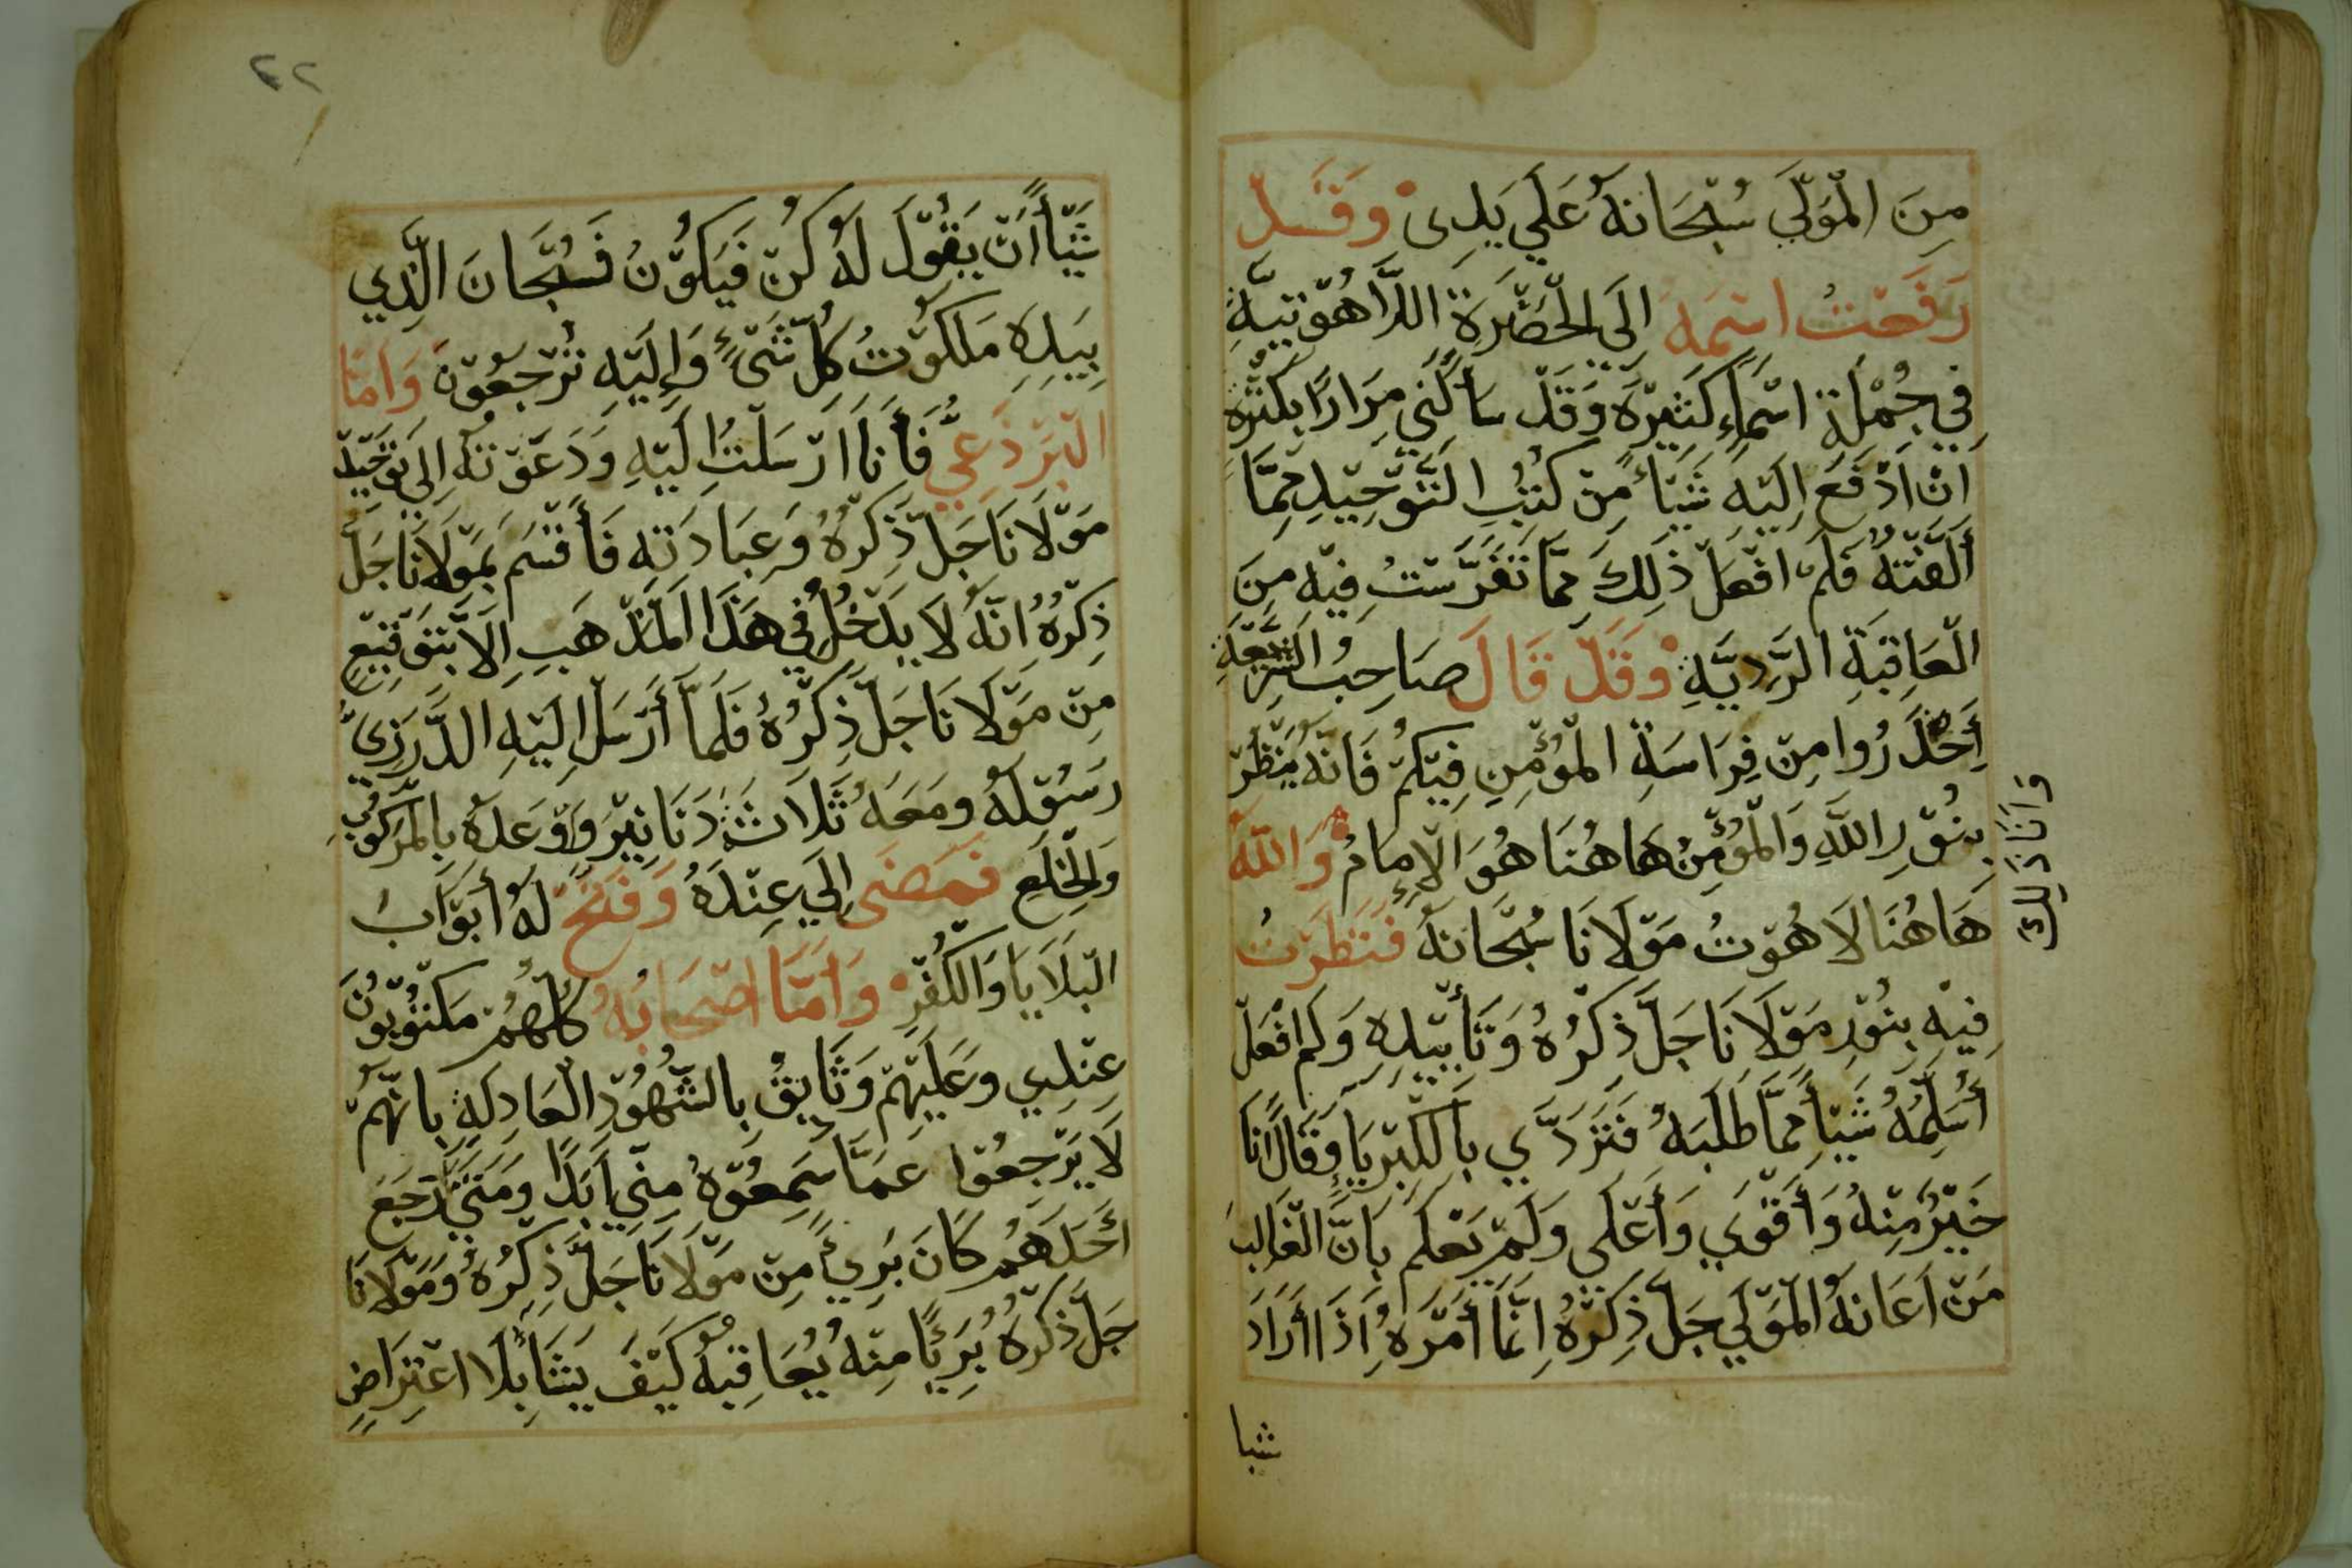 مِنَ الْمَوْلَي سُبْحَانَهُ عَلَي يَدِى وَقَدْ
رَفَعْتُ اسْمَهُ الَي الْحَضْرَةِ اللَّاهُوْتِيَّةِ
فِي جُمْلَةِ اسْمَاءٍ كَثِيْرَه وَقَدْ سَأَلَنِي مِرَارًا بِكَثْرَه
انْ اَدْفَعَ اِلَيْهِ شَيْأً مِنْ كُتُبِ التَّوْحِيْدِ مِمَّا
أَلَّفْتَهُ فَلَمْ افْعَلْ ذَلِكَ مِمَّا تَفَرَّسْتُ فِيْهِ مِنَ
الْعَاقِبَةِ الرَّدِيَّةِ وَقَدْ قَالَ صَاحِبُ الشَّرِيْعَةِ
أِحْذَرُوا مِنْ فِرَاسَةِ الْمُؤْمِنِ فِيْكُمْ فَانَّهُ يَنْظُرْ
بِنُوْرِ اللَّهِ وَالْمُؤْمِنُ هَاهُنَا هُوَ الْإِمَامُ وَاللَّهُ
هَاهُنَا لَاهُوْتُ مَوْلَانَا سُبْحَانَهُ فَنَظَرْتُ
فِيْهِ بِنُوْرِ مَوْلَانَا جَلَّ ذِكْرُهُ وَتَأْيِيْدِهِ وَلَمْ افْعَلْ
أُسَلِّمُهُ شَيْأً مِمَّا طَلَبَهُ فَتَزَدَّي بِالْكِبْرِيَا وَقَالَ انَا
خَيْرٌ مِنْهُ وَأَقْوَي وَأَعْلَى وَلَمْ يَعْلَمْ بِاَنَّ الْغَالِبَ
مَنْ اَعَانَهُ الْمَوْلَي جَلَّ ذِكْرُهُ اِنَّمَا أَمْرُهُ اِذَا أَرَادَ
شيا
وَانَا ذَلِكَ
٢٢
شَيْأً أَنْ يَقُوْلَ لَهُ كُنْ فَيَكُوْنُ فَسُبْحَانَ الَّذِي
بِيَدِهِ مَلَكُوْتُ كُلِّ شَىْءٍ وَإِلَيْهِ تُرْجَعُوْنَ وَامَّا
الْبَرْذَعِيُّ فَأَنَا ارْسَلْتُ اِلَيْهِ وَدَعَوْتُهُ اِلَي تَوْحِيْدْ
مَوْلَانَا جَلَّ ذِكْرُهُ وَعِبَادَتِهِ فَأَقْسَمَ بِمَوْلَانَا جَلَّ
ذِكْرُهُ انَّهُ لَا يَدْخُلُ فِي هَذَا الْمَذْهَبِ اِلَّا بِتَوْقِيْعٍ
مِنْ مَوْلَانَا جَلَّ ذِكْرُهُ فَلَمَّا أَرْسَلَ اِلَيْهِ الدَّرَزِيُّ
رَسُوْلَهُ وَمَعَهُ ثَلَاثَةُ دَنَانِيْرَ وَاوْعَدَهُ بِالْمَرْكُوْبِ
وَالْخِلَعِ فَمَضَى اِلَي عِنْدَهُ وَفَتَحَ لَهُ أَبْوَابُ
الْبَلَايَا وَالْكُفْرِ وَامَّا اصْحَابُهُ كُلُّهُمْ مَكْتُوْبُوْنَ
عِنْدِي وَعَلَيْهِمْ وَثَايِقْ بِالشُّهُوْدِ الْعَادِلَةِ بِانَّهُمْ
لَا يَرْجِعُوْا عَمَّا سَمِعُوْهُ مِنِّي اَبَدًا وَمَتَي رَجَعَ
أَحَدَهُمْ كَانَ بَرِيْءً مِنْ مَوْلَانَا جَلَّ ذِكْرُهُ وَمَوْلَانَا
جَلَّ ذِكْرُهُ بَرِيْئًا مِنْهُ يُعَاقِبُهُ كَيْفَ يَشَا بِلَا اعْتِرَاضٍ